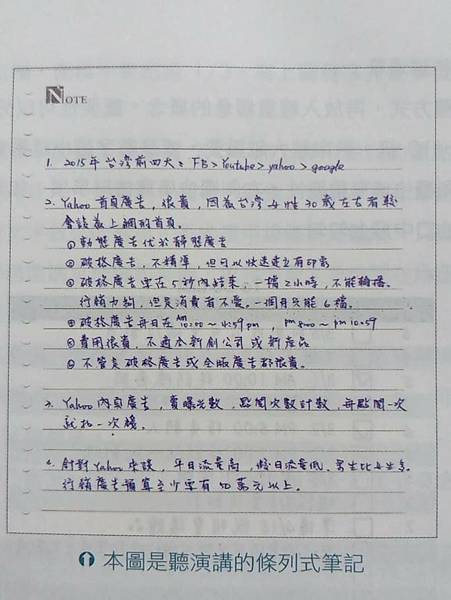 NOTE
1. 2015年台灣前四大：FB > Youtube > yahoo > google
2. Yahoo首頁廣告，很貴，因為台灣女性30歲左右者較
會設為上網的首頁。
①動態廣告优於靜態廣告
②破格廣告，不精準，但可以快速建立有印象
③破格廣告要在5秒內結束，一檔2小時，不能輪播。
行銷力夠，但是消費者不愛。一個月只能6檔。
④破格廣告每日在 am 10:00 ~ 4:59 pm， pm 8:00 ~ pm 10:59
⑤費用很貴，不適合新創公司或新產品
⑥不管是破格廣告或全版廣告都很貴。
3. Yahoo內頁廣告，賣曝光數，點閱次數計數，每點閱一次
就扣一次錢。
4. 針對Yahoo來說，平日流量高，假日流量低。男生比女生多。
行銷廣告預算至少要有50萬元以上。
本圖是聽演講的條列式筆記